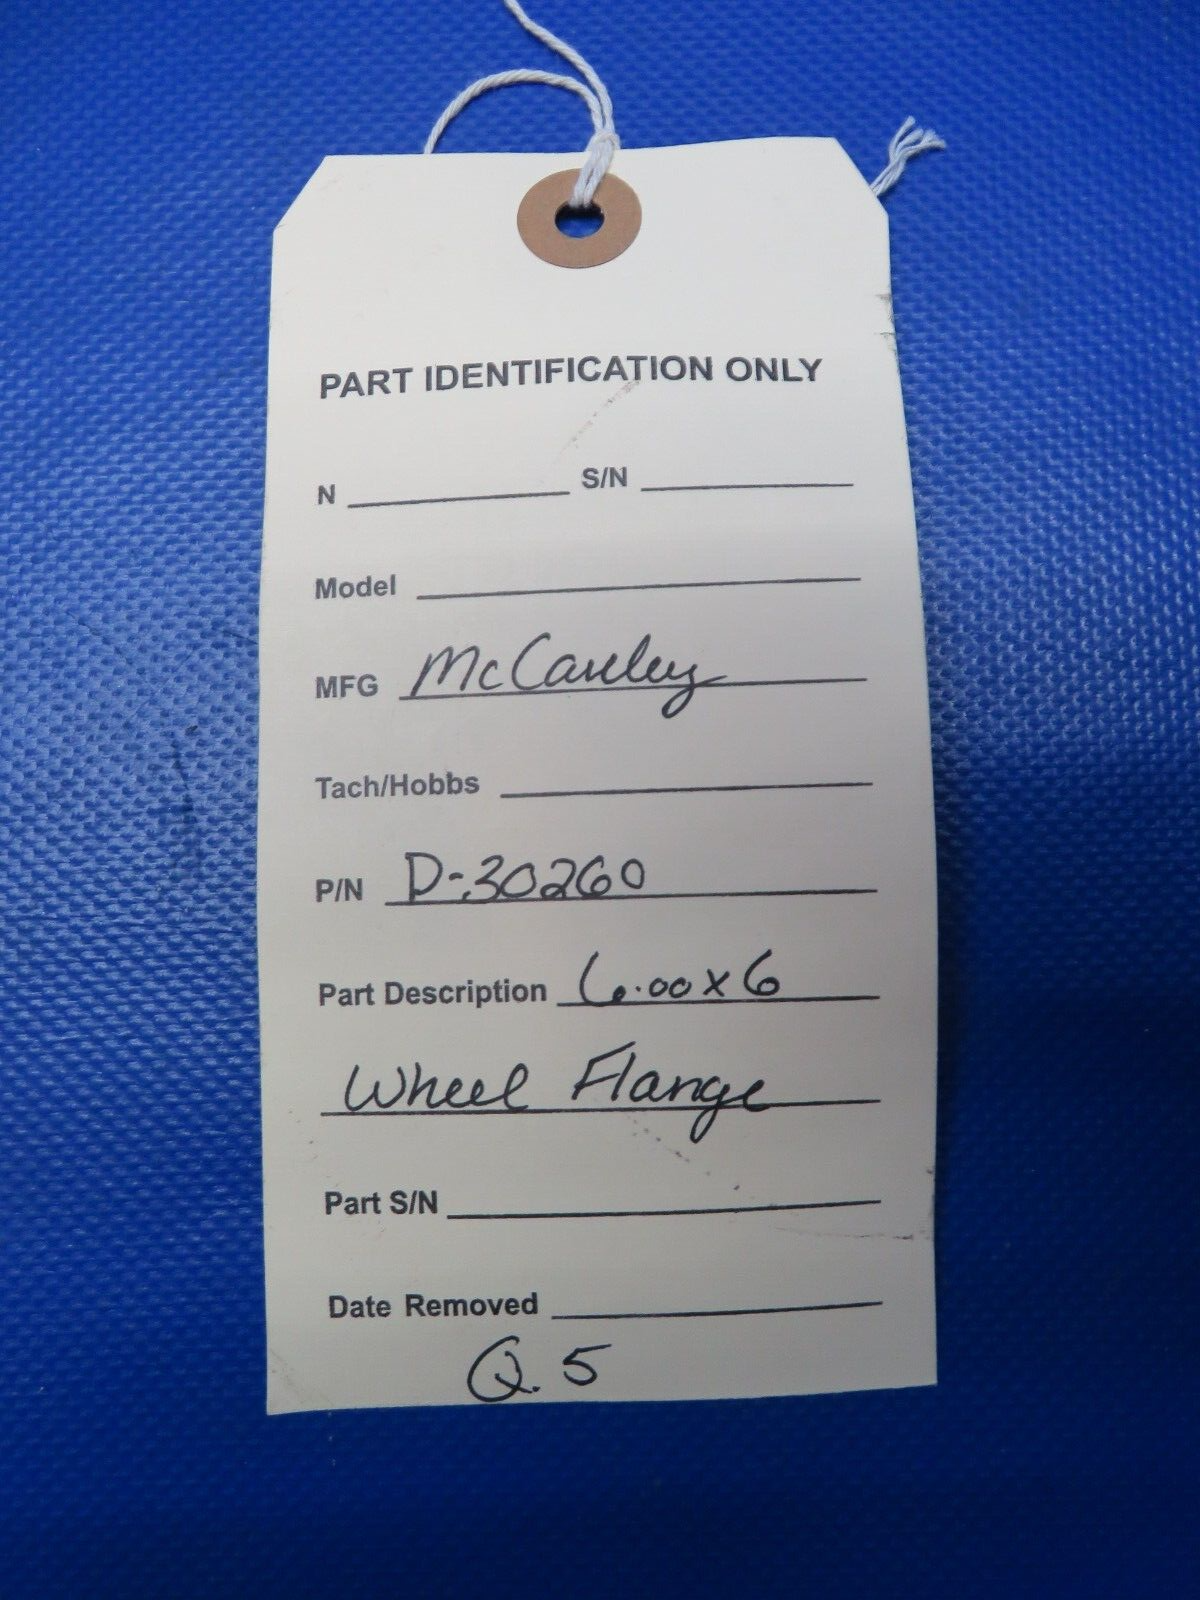 PART IDENTIFICATION ONLY
N S/N
Model
MFG McCauley
Tach/Hobbs
P/N D-30260
Part Description 6.00 x 6
Wheel Flange
Part S/N
Date Removed
Q.5